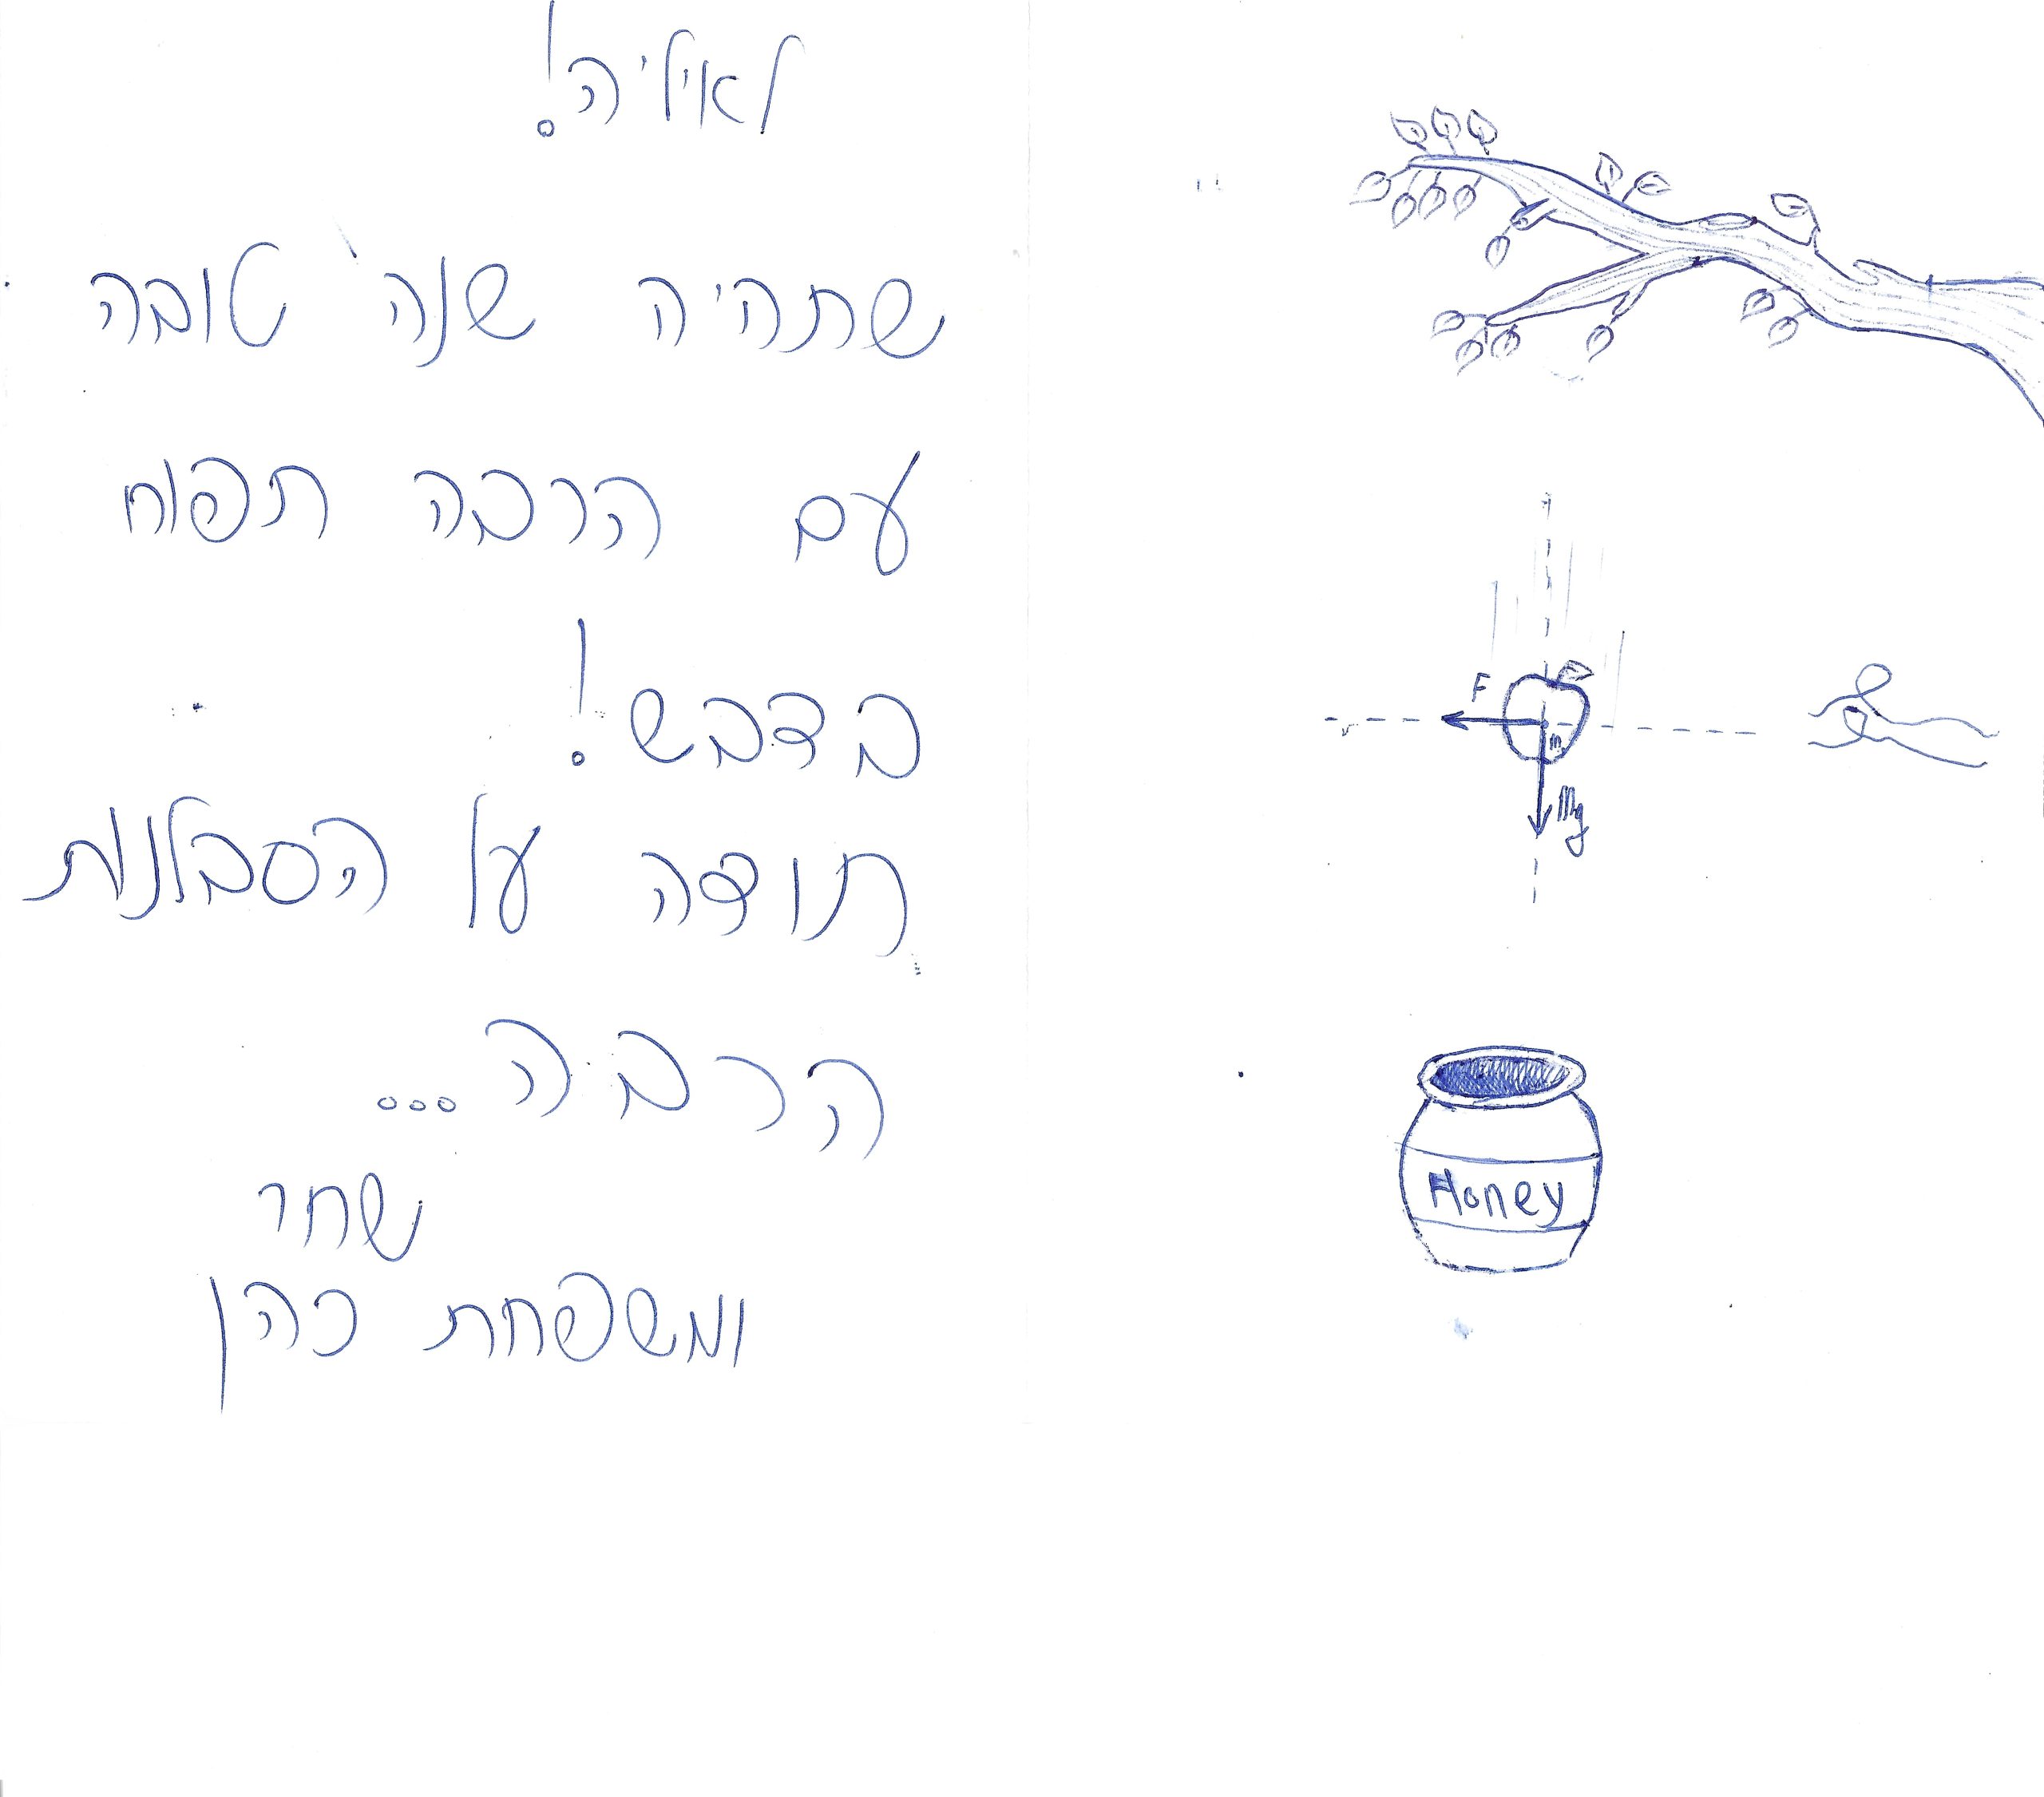 לאיליה!
שתהיה שנה טובה
עם הרבה תפוח
בדבש!
תודה על הסבלנות
הרבה...
שחר
ומשפחת כהן
F
m
mg
Honey